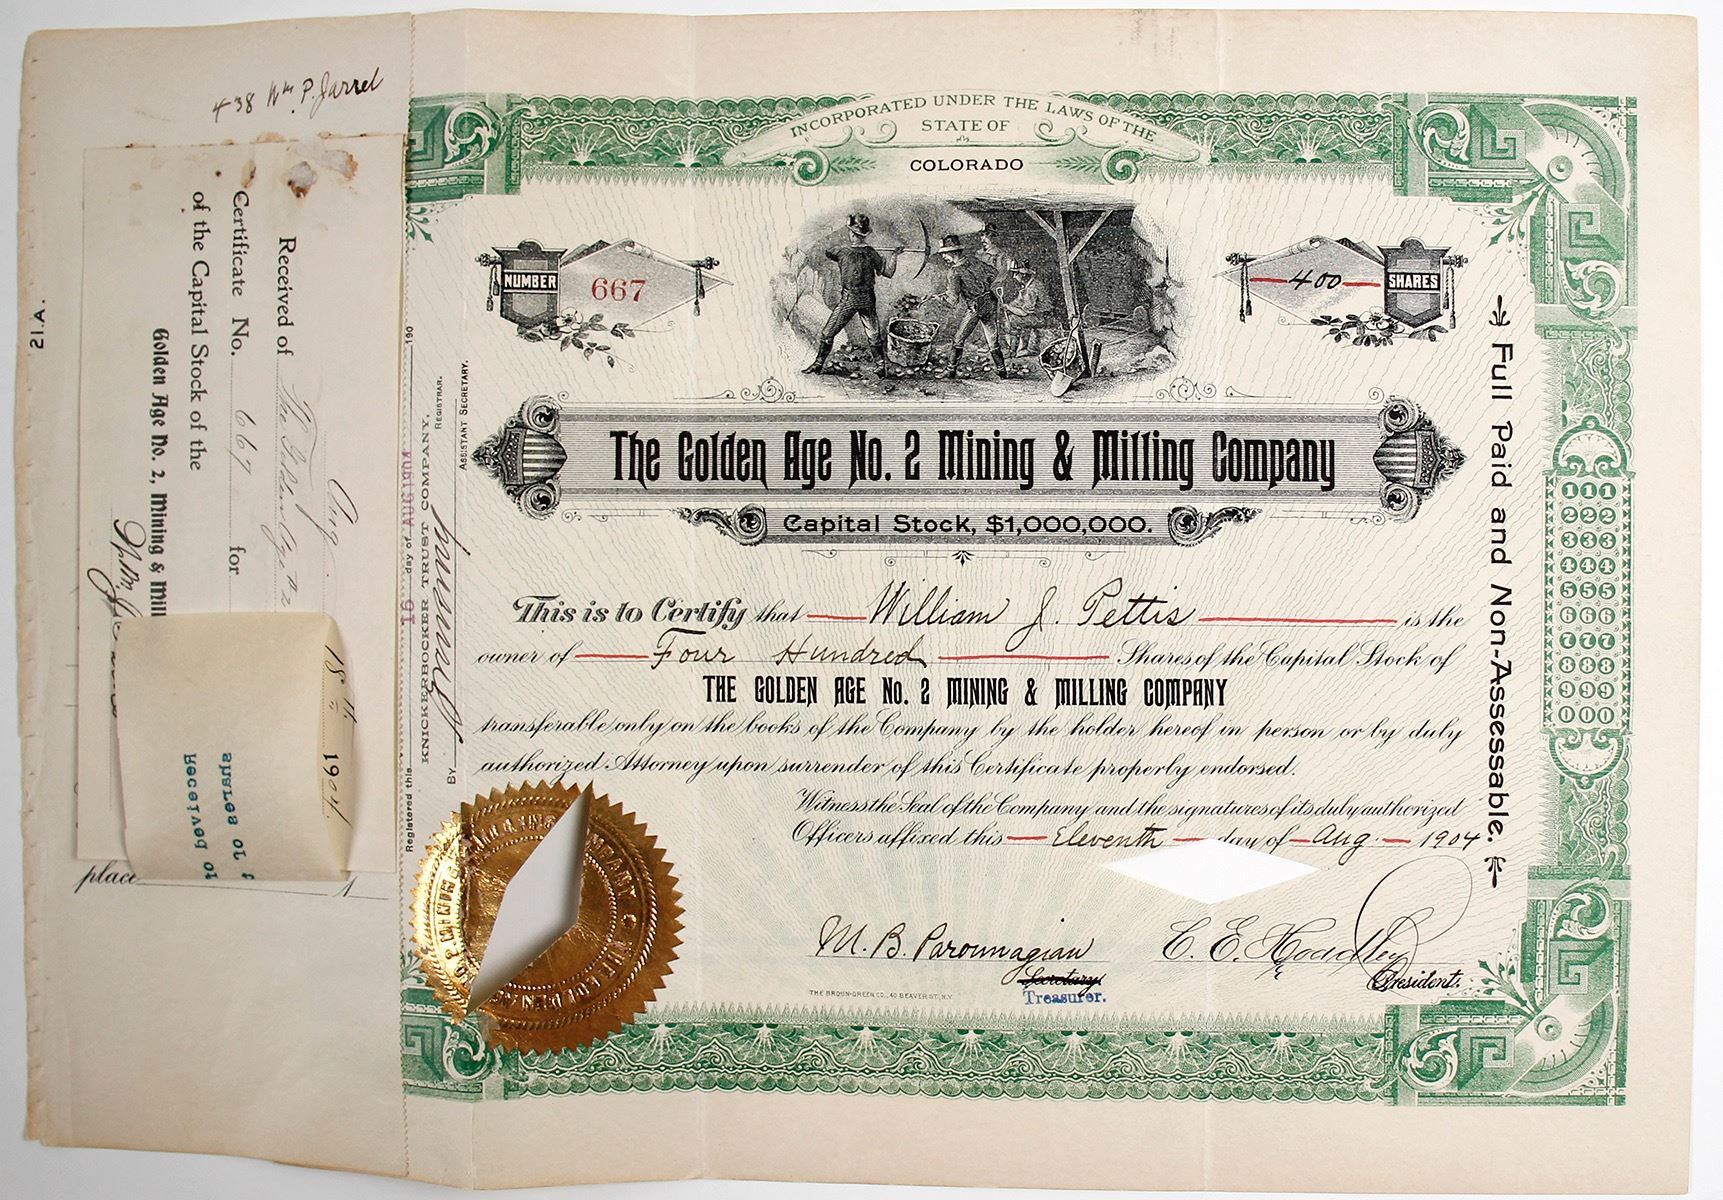 438 Wm P. Jarrel
21A.
Received of
Certificate No. 667 for
of the Capital Stock of the
Golden Age No. 2, Mining & Mill
Aug.
18th 1904.
Received
shares of
place
Registered this 16 day of AUGUST 190
KNICKERBOCKER TRUST COMPANY,
REGISTRAR.
By
ASSISTANT SECRETARY.
INCORPORATED UNDER THE LAWS OF THE
STATE OF
COLORADO
NUMBER
667
400
SHARES
The Golden Age No. 2 Mining & Milling Company
Capital Stock, $1,000,000.
This is to Certify that William J. Pettis is the
owner of Four Hundred Shares of the Capital Stock of
THE GOLDEN AGE No. 2 MINING & MILLING COMPANY
transferable only on the books of the Company by the holder hereof in person or by duly
authorized Attorney upon surrender of this Certificate properly endorsed.
Witness the Seal of the Company and the signatures of its duly authorized
Officers affixed this Eleventh day of Aug. 1904
M. B. Parounagian
Secretary.
Treasurer.
C. E. Hoadley
President.
THE BROUN-GREEN CO., 40 BEAVER ST. N.Y.
Full Paid and Non-Assessable.
111
222
333
444
555
666
777
888
999
000